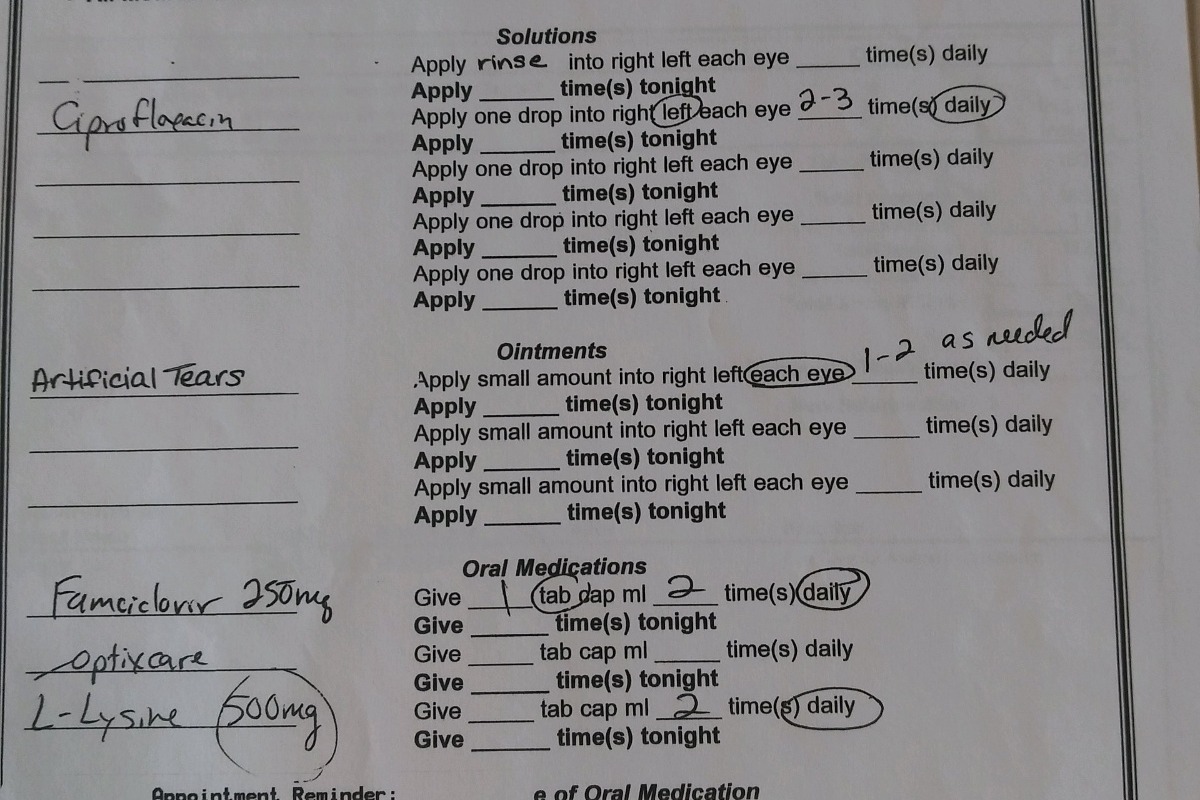 Solutions
Apply rinse into right left each eye _____ time(s) daily
Apply ______ time(s) tonight
Ciprofloxacin Apply one drop into right left each eye 2-3 time(s) daily
Apply ______ time(s) tonight
Apply one drop into right left each eye _____ time(s) daily
Apply ______ time(s) tonight
Apply one drop into right left each eye _____ time(s) daily
Apply ______ time(s) tonight
Apply one drop into right left each eye _____ time(s) daily
Apply ______ time(s) tonight
Ointments
Artificial Tears Apply small amount into right left each eye 1-2 as needed time(s) daily
Apply ______ time(s) tonight
Apply small amount into right left each eye _____ time(s) daily
Apply ______ time(s) tonight
Apply small amount into right left each eye _____ time(s) daily
Apply ______ time(s) tonight
Oral Medications
Famciclovir 250mg Give 1 tab cap ml 2 time(s) daily
Give ______ time(s) tonight
Optixcare Give _____ tab cap ml _____ time(s) daily
Give ______ time(s) tonight
L-Lysine 500mg Give _____ tab cap ml 2 time(s) daily
Give ______ time(s) tonight
Appointment Reminder: e of Oral Medication